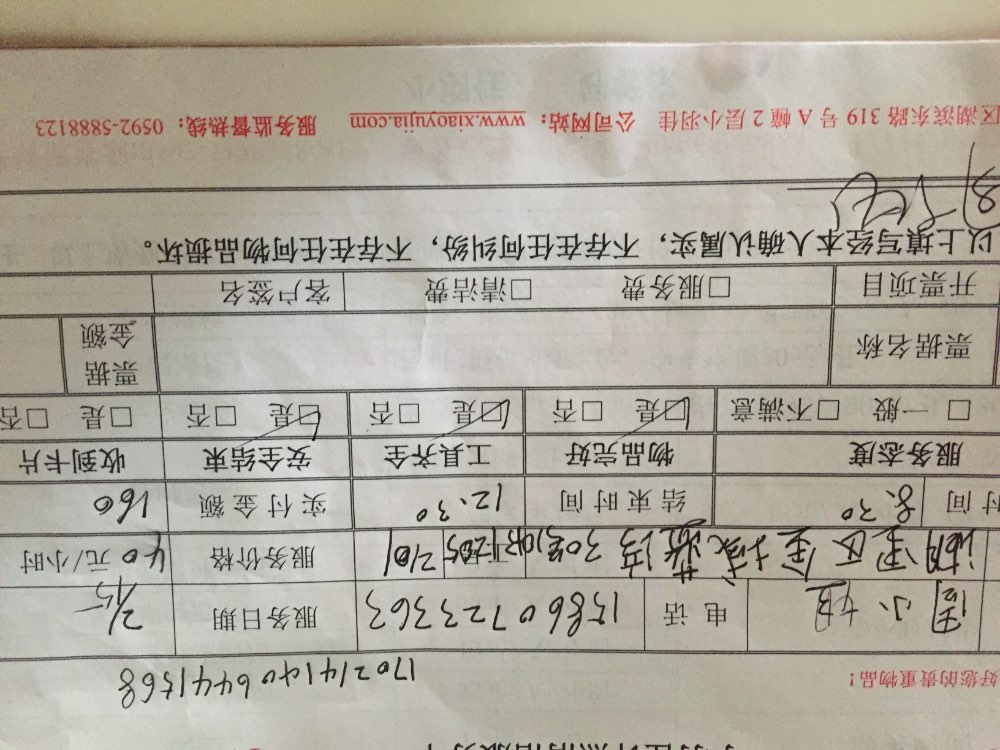 好您的贵重物品！
1702141406441568
周小姐 电话 15860723363 服务日期 2/15
湖里区金域蓝湾30号 2101 服务价格 40元/小时
时间 8.30 结束时间 12.30 实付金额 160
服务态度 物品完好 工具齐全 安全结束 收到卡片
□一般 □不满意 ☑是 □否 ☑是 □否 ☑是 □否 □是 □否
票据名称 票据金额
开票项目 □服务费 □清洁费 客户签名
以上填写经本人确认属实，不存在任何纠纷，不存在任何物品损坏。
区湖滨东路 319 号 A 幢 2 层小羽佳 公司网站：www.xiaoyujia.com 服务监督热线：0592-5888123